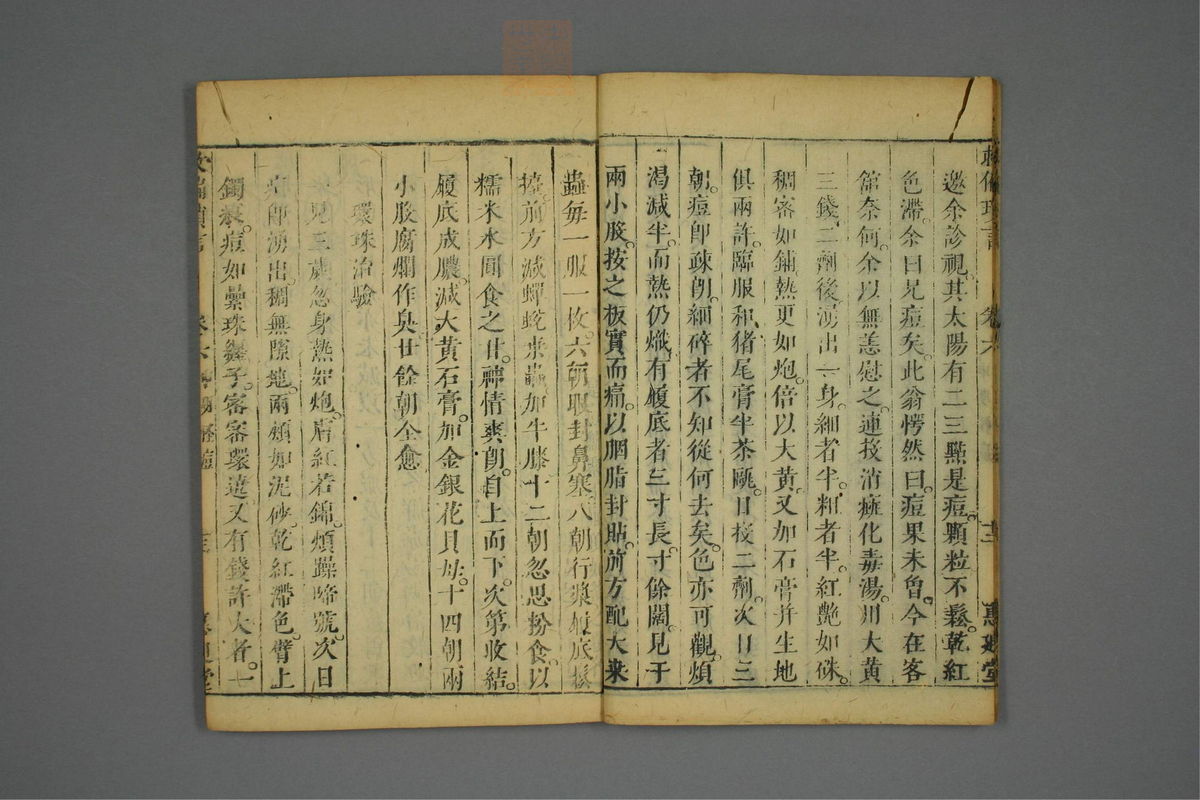 救偏瑣言　卷六　十二　惠迪堂
邀余診視。其太陽有二三點是痘。顆粒不鬆。乾紅
色滯。余曰兄痘矣。此翁愕然曰。痘果未曾。今在客
舘奈何。余以無恙慰之。連投消癍化毒湯。用大黃
三錢。二劑後湧出一身。細者半。粗者半。紅艷如硃。
稠密如鋪。熱更如炮。倍以大黃。又加石膏并生地
俱兩許。臨服和猪尾膏半茶甌。日投二劑。次日三
朝。痘卽疎朗。細碎者不知從何去矣。色亦可觀。煩
渴減半。而熱仍熾。有履底者三寸長。寸餘闊。見于
兩小股。按之板實而痛。以胭脂封貼。前方配大桒
蟲每一服一枚。六朝眼封鼻塞。八朝行漿。履底鬆
擡。前方減蟬蛻桒蟲加牛膝。十二朝忽思粉食。以
糯米水圓食之甘。神情爽朗。自上而下。次第收結。
履底成膿。減大黃石膏。加金銀花貝母。十四朝兩
小股腐爛作臭。廿餘朝全愈
環珠治驗
兒三歲。忽身熱如炮。唇紅若錦。煩躁啼號。次日
痘卽湧出。稠無隙地。兩頰如泥砂。乾紅滯色。臂上
鐲痕。痘如纍珠疊子。密密環遶。又有錢許大者。十
救偏瑣言　卷六　十三　惠迪堂